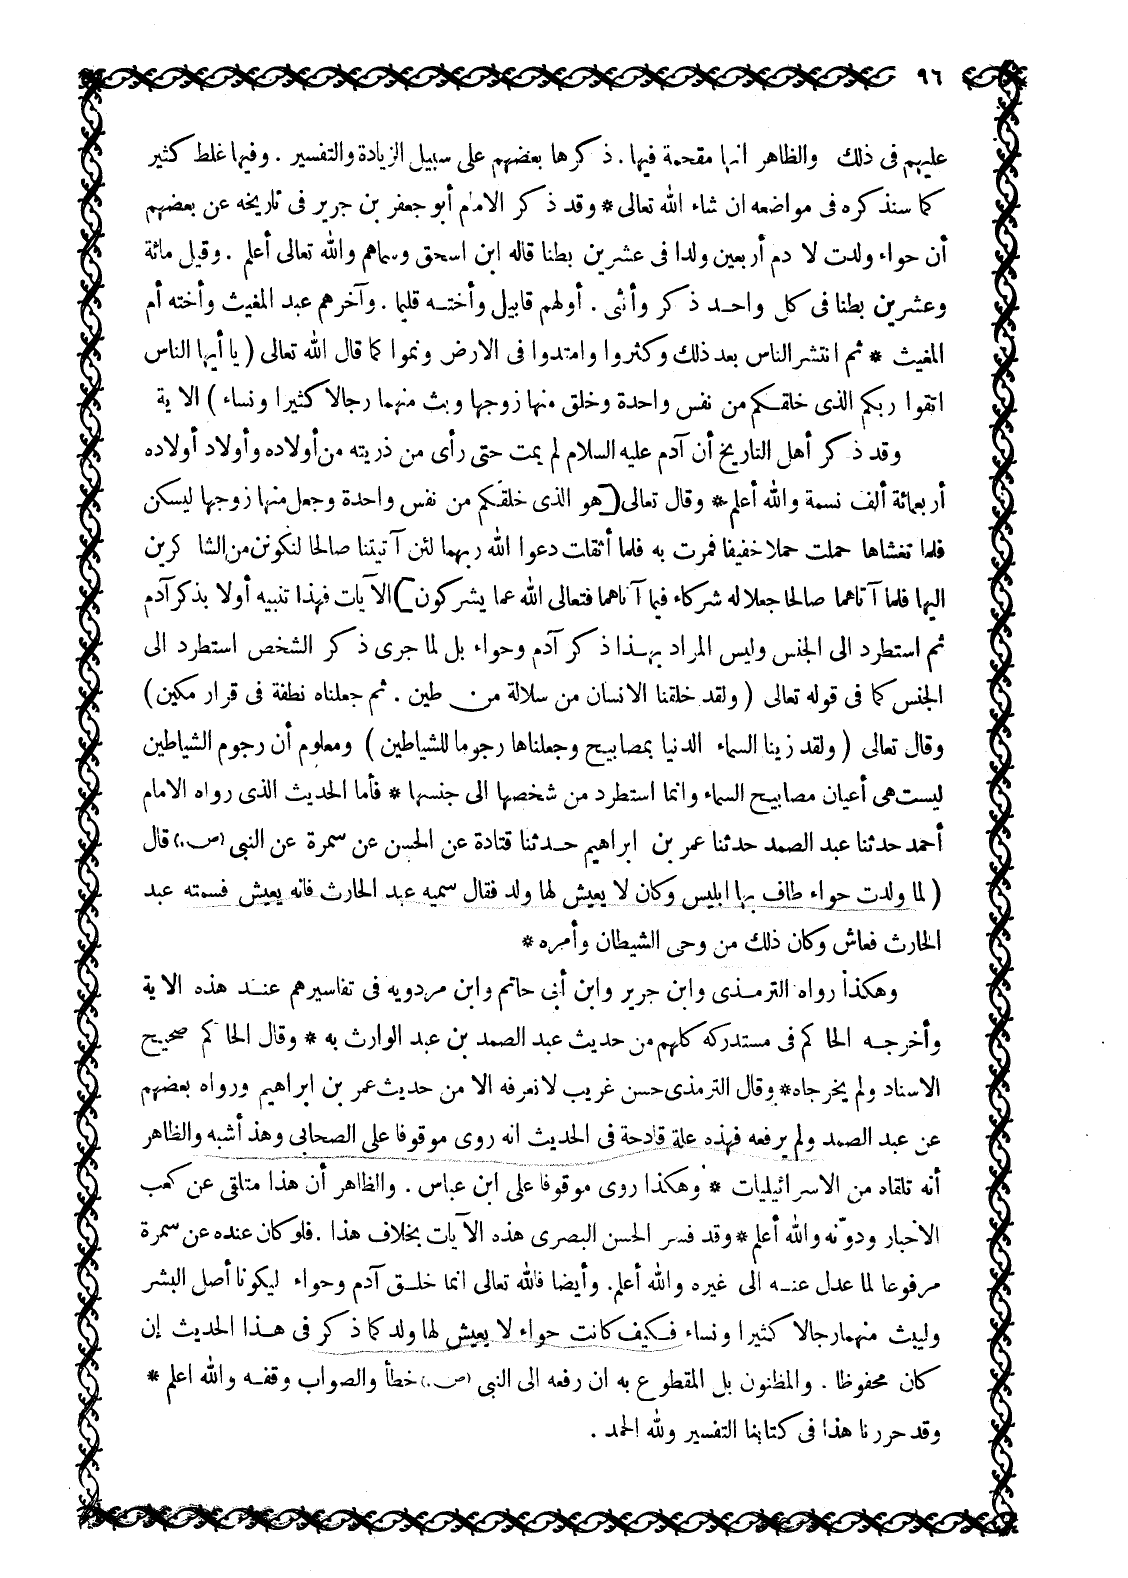 ٩٦
عليهم فى ذلك والظاهر انها مقحمة فيها . ذكرها بعضهم على سبيل الزيادة والتفسير . وفيها غلط كثير
كما سنذكره فى مواضعه ان شاء الله تعالى * وقد ذكر الامام أبو جعفر بن جرير فى تاريخه عن بعضهم
أن حواء ولدت لا دم أربعين ولدا فى عشرين بطنا قاله ابن اسحق وسماهم والله تعالى أعلم . وقيل مائة
وعشرين بطنا فى كل واحد ذكر وأنثى . أولهم قابيل وأخته قليما . وآخرهم عبد المغيث وأخته أم
المغيث * ثم انتشر الناس بعد ذلك وكثروا وامتدوا فى الارض ونموا كما قال الله تعالى ( يا أيها الناس
اتقوا ربكم الذى خلقكم من نفس واحدة وخلق منها زوجها وبث منهما رجالا كثيرا ونساء ) الا ية
وقد ذكر أهل التاريخ أن آدم عليه السلام لم يمت حتى رأى من ذريته من أولاده وأولاد أولاده
أربعمائة ألف نسمة والله أعلم * وقال تعالى [هو الذى خلقكم من نفس واحدة وجعل منها زوجها ليسكن
فلما تغشاها حملت حملا خفيفا فمرت به فلما أثقلت دعوا الله ربهما لئن آتيتنا صالحا لنكونن من الشا كرين
اليها فلما آتاهما صالحا جعلا له شركاء فيما آتاهما فتعالى الله عما يشركون] الآيات فهذا تنبيه أولا بذكر آدم
ثم استطرد الى الجنس وليس المراد بهذا ذكر آدم وحواء بل لما جرى ذكر الشخص استطرد الى
الجنس كما فى قوله تعالى ( ولقد خلقنا الانسان من سلالة من طين . ثم جعلناه نطفة فى قرار مكين )
وقال تعالى ( ولقد زينا السماء الدنيا بمصابيح وجعلناها رجوما للشياطين ) ومعلوم أن رجوم الشياطين
ليست هى أعيان مصابيح السماء وانما استطرد من شخصها الى جنسها * فأما الحديث الذى رواه الامام
أحمد حدثنا عبد الصمد حدثنا عمر بن ابراهيم حدثنا قتادة عن الحسن عن سمرة عن النبى (ص.) قال
( لما ولدت حواء طاف بها ابليس وكان لا يعيش لها ولد فقال سميه عبد الحارث فانه يعيش فسمته عبد
الحارث فعاش وكان ذلك من وحى الشيطان وأمره *
وهكذا رواه الترمذى وابن جرير وابن أبى حاتم وابن مردويه فى تفاسيرهم عند هذه الا ية
وأخرجه الحا كم فى مستدركه كلهم من حديث عبد الصمد بن عبد الوارث به * وقال الحا كم صحيح
الاسناد ولم يخرجاه * وقال الترمذى حسن غريب لا نعرفه الا من حديث عمر بن ابراهيم ورواه بعضهم
عن عبد الصمد ولم يرفعه فهذه علة قادحة فى الحديث انه روى موقوفا على الصحابى وهذ أشبه والظاهر
أنه تلقاه من الاسرائيليات * وهكذا روى موقوفا على ابن عباس . والظاهر أن هذا متلقى عن كعب
الاحبار ودوّنه والله أعلم * وقد فسر الحسن البصرى هذه الآيات بخلاف هذا . فلو كان عنده عن سمرة
مرفوعا لما عدل عنه الى غيره والله أعلم . وأيضا فالله تعالى انما خلق آدم وحواء ليكونا أصل البشر
وليبث منهما رجالا كثيرا ونساء فكيف كانت حواء لا يعيش لها ولد كما ذكر فى هذا الحديث إن
كان محفوظا . والمظنون بل المقطوع به ان رفعه الى النبى (ص.) خطأ والصواب وقفه والله اعلم *
وقد حررنا هذا فى كتابنا التفسير ولله الحمد .